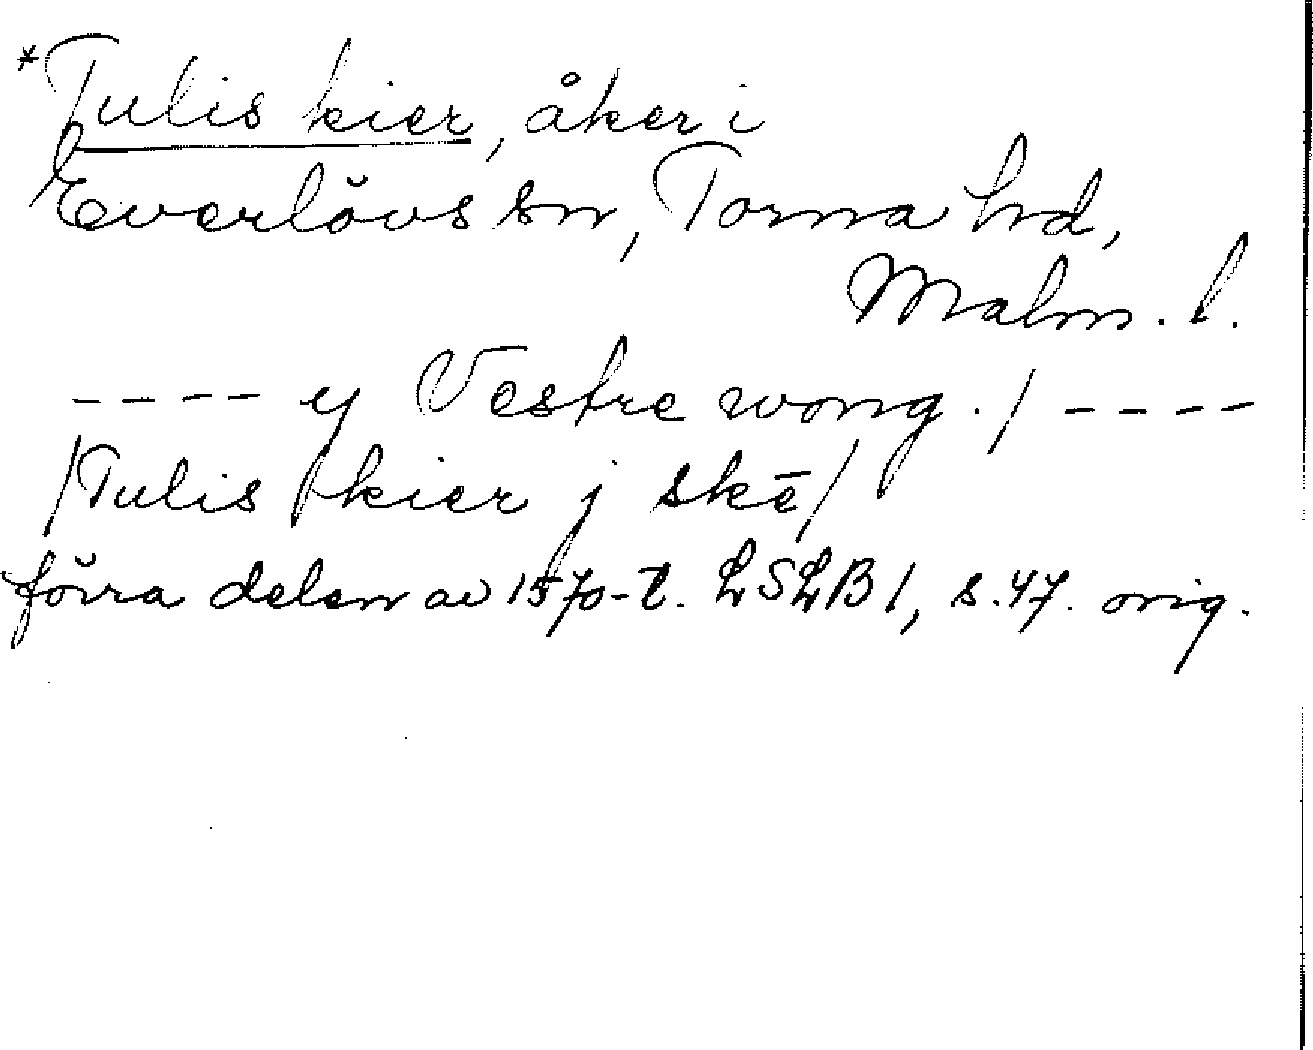 *Tulis kier, åker i
Everlövs sn, Torna hd,
Malm. l.
---- y Vestre wong. / ----
/Tulis kier j skē/
förra delen av 1570-t. LSLB 1, s. 47. orig.